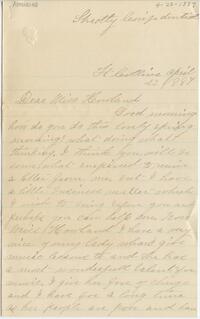 4-22-1884
April
22 1884
Dear Miss Howland
Good morning
how do you do this lovely spring
morning? what doing what
thinking. I think you will be
somewhat surprised to receive
a letter from me but I have
a little business matter which I
wish to bring before you and
perhaps you can help me. Now
Miss Howland I have a very
nice young lady whom I give
music lessons to and she has
a most wonderful talent for
music. I give her free of charge
and I have for a long time
as her people are poor and